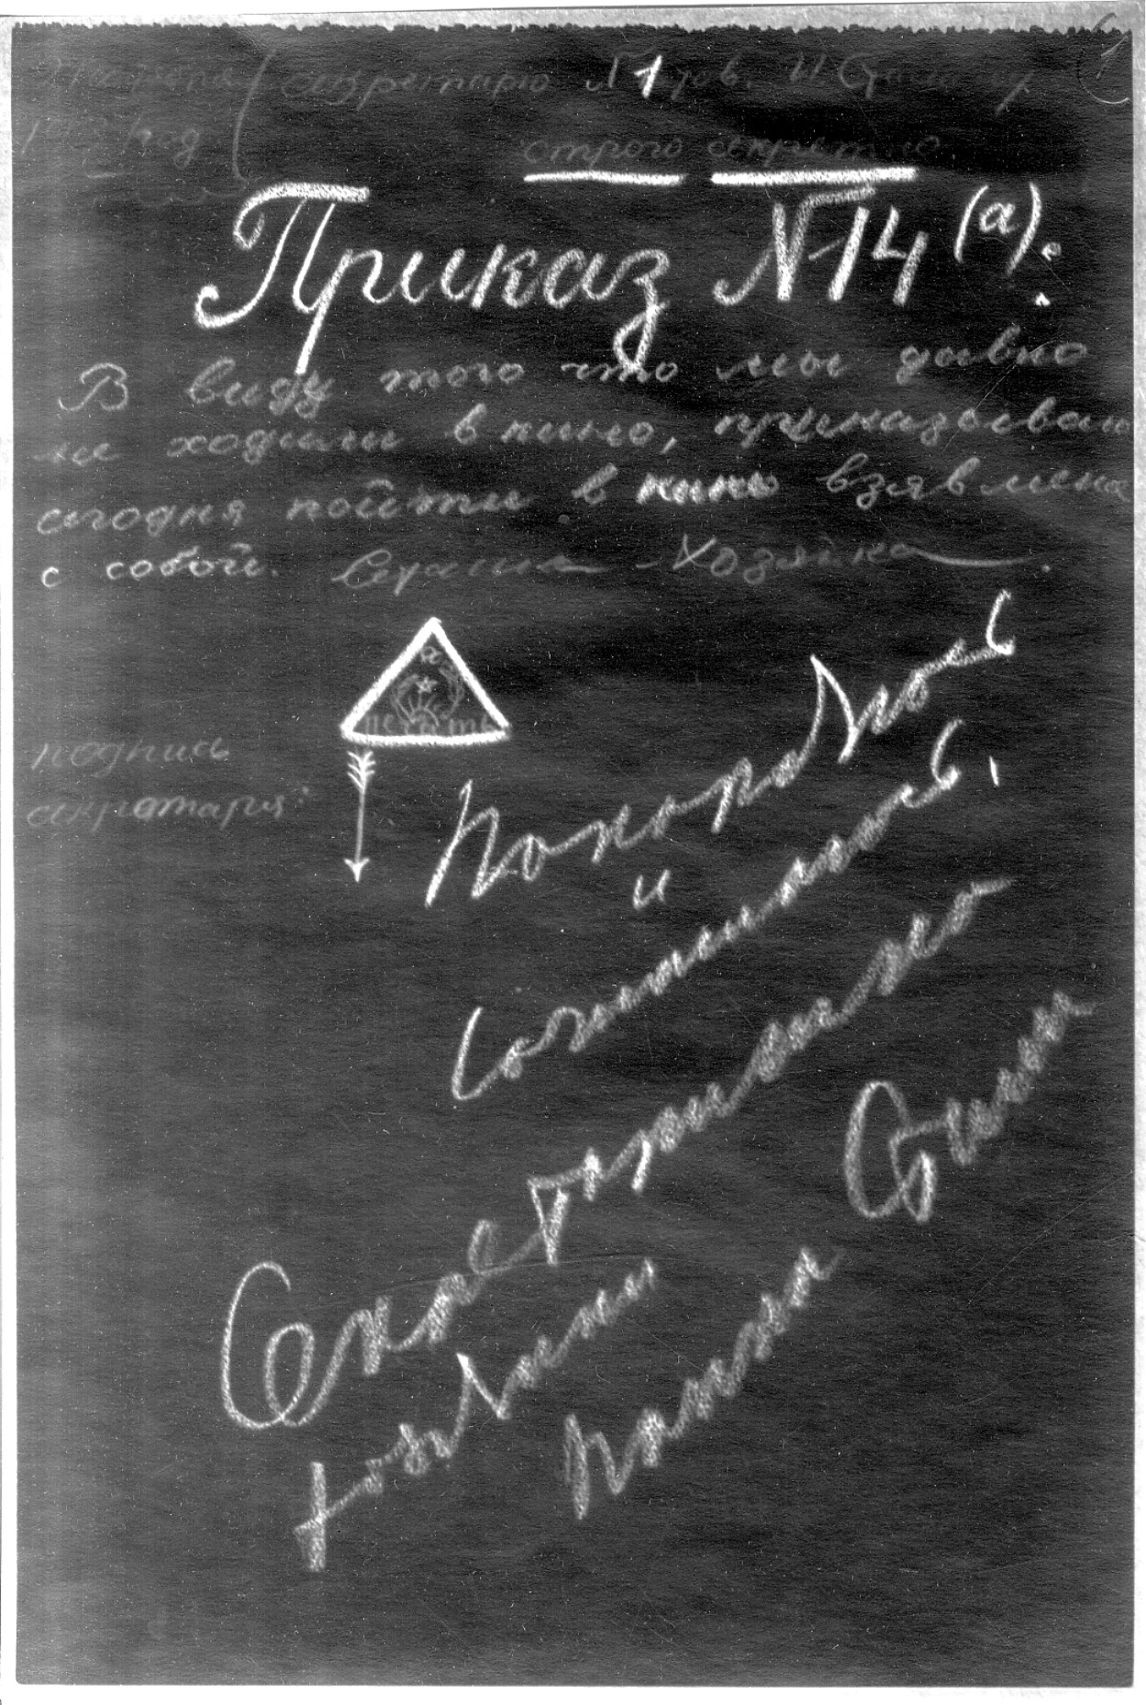 секретарю № 1 тов. И Сталину
год
строго секретно.
Приказ № 14 (а).
В виду того что мы давно
не ходили в кино, приказываю
сегодня пойти в кино взяв меня
с собой. Сетанка Хозяйка.
а
печать
подпись
секретаря:
Покоряюсь
и
соглашаюсь,
Секретаришко
хозяйки
Сталин